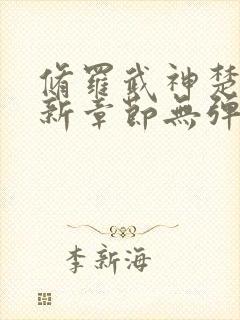 脩羅武神楚
新章節無彈
李新海